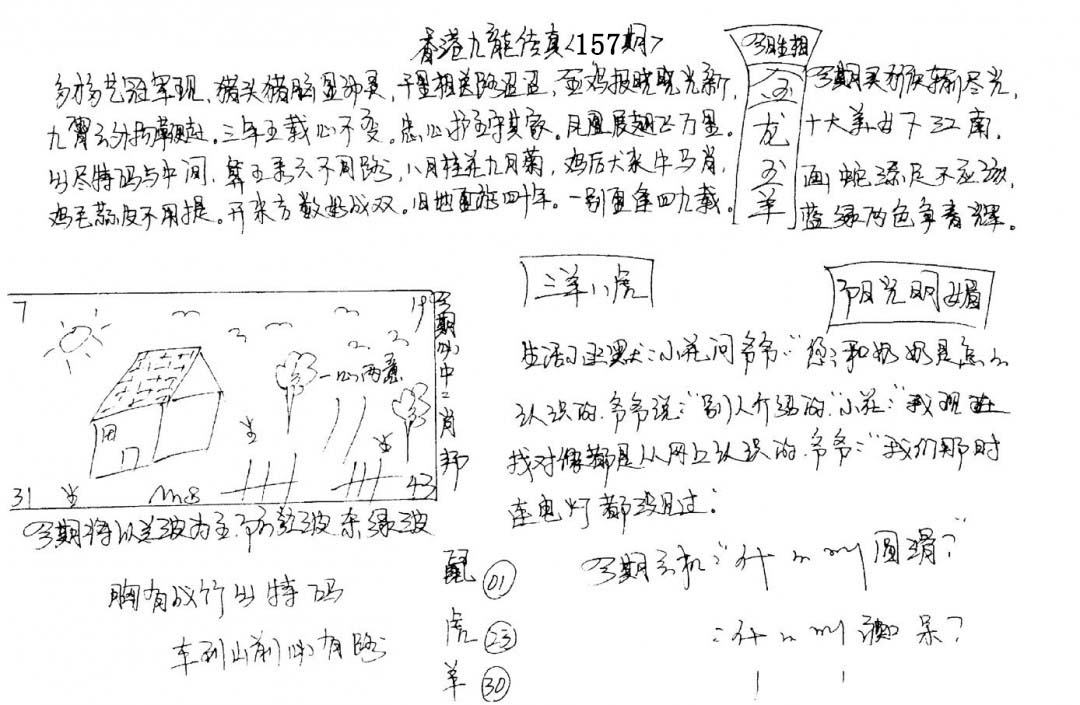 香港九龙传真<157期>
多才多艺冠军现，猪头猪脑显神灵，千里相关路迢迢，金鸡报晓晓光新，
九霄云外扬鞭赶。三年五载心不变。忠心护主守其家。凤凰展翅飞万里。
出尽特码与中间，不同路，八月桂花九月菊，鸡后犬来牛马肖，
鸡毛蒜皮不用提。开来方数好成双。旧地重游四十年。一别重逢四九载。
今期生相
龙
羊
今期买尽光，
十大美女下江南，
画蛇添足不应该，
蓝绿两色争春辉。
7
19
31
43
一心两意
今期必中二肖邦
今期特以蓝波为主，防红波杂绿波
三羊八虎
阳光明媚
生活幽默：小花问爷爷："您和奶奶是怎么
认识的，爷爷说："别人介绍的"小花："我现在
找对像都是从网上认识的，爷爷："我们那时
连电灯都没见过：
胸有成竹出特码
车到山前必有路
鼠 01
虎 23
羊 30
今期玄机"什么叫圆滑？"
：什么叫痴呆？